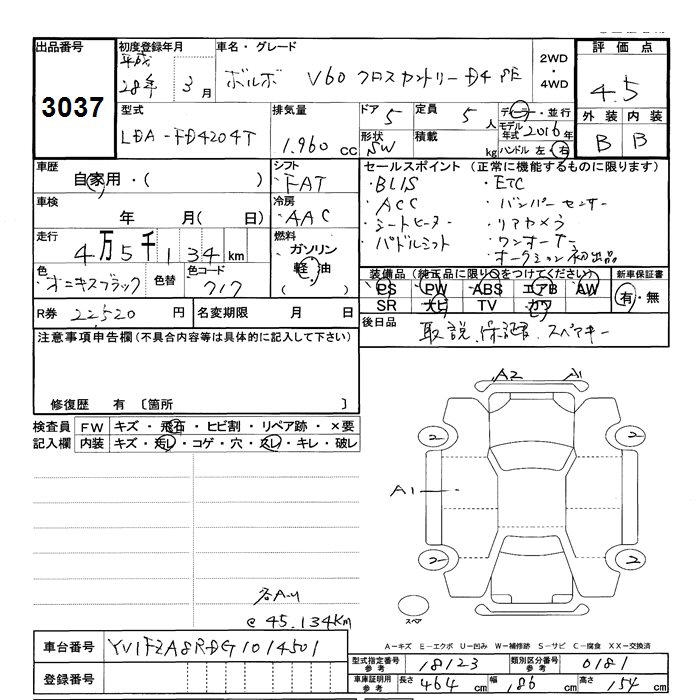 出品番号
3037
初度登録年月
平成
28年 3月
車名・グレード
ボルボ V60 クロスカントリー D4 PE
2WD
・
4WD
評価点
4.5
外装 内装
B B
型式
LDA-FD4204T
排気量
1.960 cc
ドア 5
形状 SW
定員 5 人
積載 kg
ディーラー・並行
モデル年式 2016年
ハンドル 左・右
車歴
自家用・( )
シフト
FAT
車検
年 月( 日)
冷房
AAC
走行
4万5千134km
燃料
ガソリン
軽油
( )
色
オニキスブラック
色替
色コード
717
R券 22,520円
名変期限 月 日
セールスポイント (正常に機能するものに限ります)
・BLIS ・ETC
・ACC ・バンパーセンサー
・シートヒーター ・リアカメラ
・パドルシフト ・ワンオーナー
・オークション初出品
装備品(純正品に限り○をつけてください)
PS PW ABS エアB AW
SR ナビ TV カワ
新車保証書
有・無
後日品
取説、保証書、スペアキー
注意事項申告欄(不具合内容等は具体的に記入して下さい)
修復歴 有 〔箇所 〕
検査員記入欄
FW キズ・飛石・ヒビ割・リペア跡・×要
内装 キズ・汚レ・コゲ・穴・スレ・キレ・破レ
A2 A1
2 2
A1
2 2
スペア
各A・U
@ 45.134km
A-キズ E-エクボ U-凹み W-補修跡 S-サビ C-腐食 XX-交換済
車台番号 YV1FZA8RDG1014501
登録番号
型式指定番号 参考 18123
類別区分番号 参考 0181
車庫証明用 参考 長さ 464 cm 幅 186 cm 高さ 154 cm